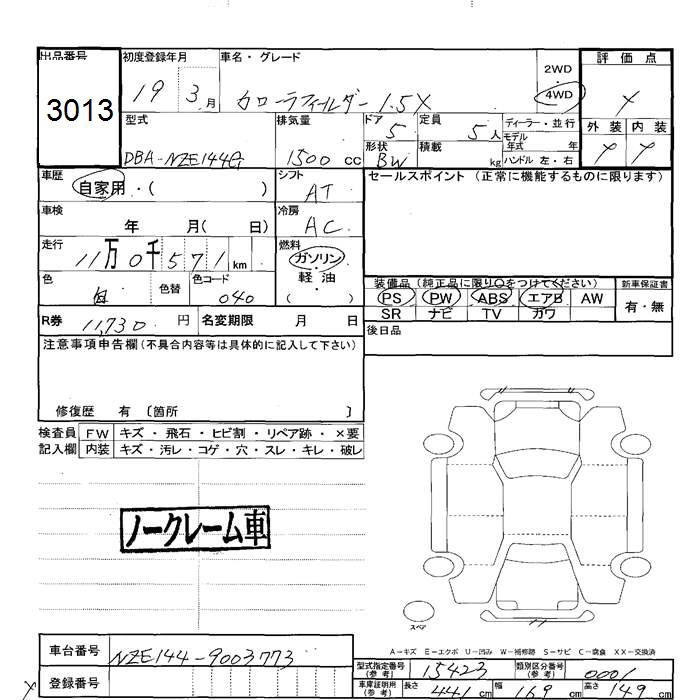 出品番号
3013
初度登録年月
19 3月
車名・グレード
カローラフィールダー 1.5X
2WD
・
4WD
評価点
外装 内装
型式
DBA-NZE144G
排気量
1500cc
ドア
5
形状
BW
定員
5人
積載
kg
ディーラー・並行
モデル
年式 年
ハンドル 左・右
車歴
自家用・( )
シフト
AT
セールスポイント (正常に機能するものに限ります)
車検
年 月( 日)
冷房
AC
走行
11万0千571km
燃料
ガソリン
・
軽油
( )
色
白
色替
色コード
040
装備品(純正品に限り○をつけてください)
PS PW ABS エアB AW
SR ナビ TV カワ
新車保証書
有・無
R券 11,730 円
名変期限 月 日
後日品
注意事項申告欄(不具合内容等は具体的に記入して下さい)
修復歴 有 〔箇所 〕
検査員
記入欄
FW キズ・飛石・ヒビ割・リペア跡・×要
内装 キズ・汚レ・コゲ・穴・スレ・キレ・破レ
ノークレーム車
スペア
A-キズ E-エクボ U-凹み W-補修跡 S-サビ C-腐食 XX-交換済
車台番号 NZE144-9003773
登録番号
型式指定番号
(参考)
15423
類別区分番号
(参考)
0001
車庫証明用
(参考)
長さ 441cm 幅 169cm 高さ 149cm